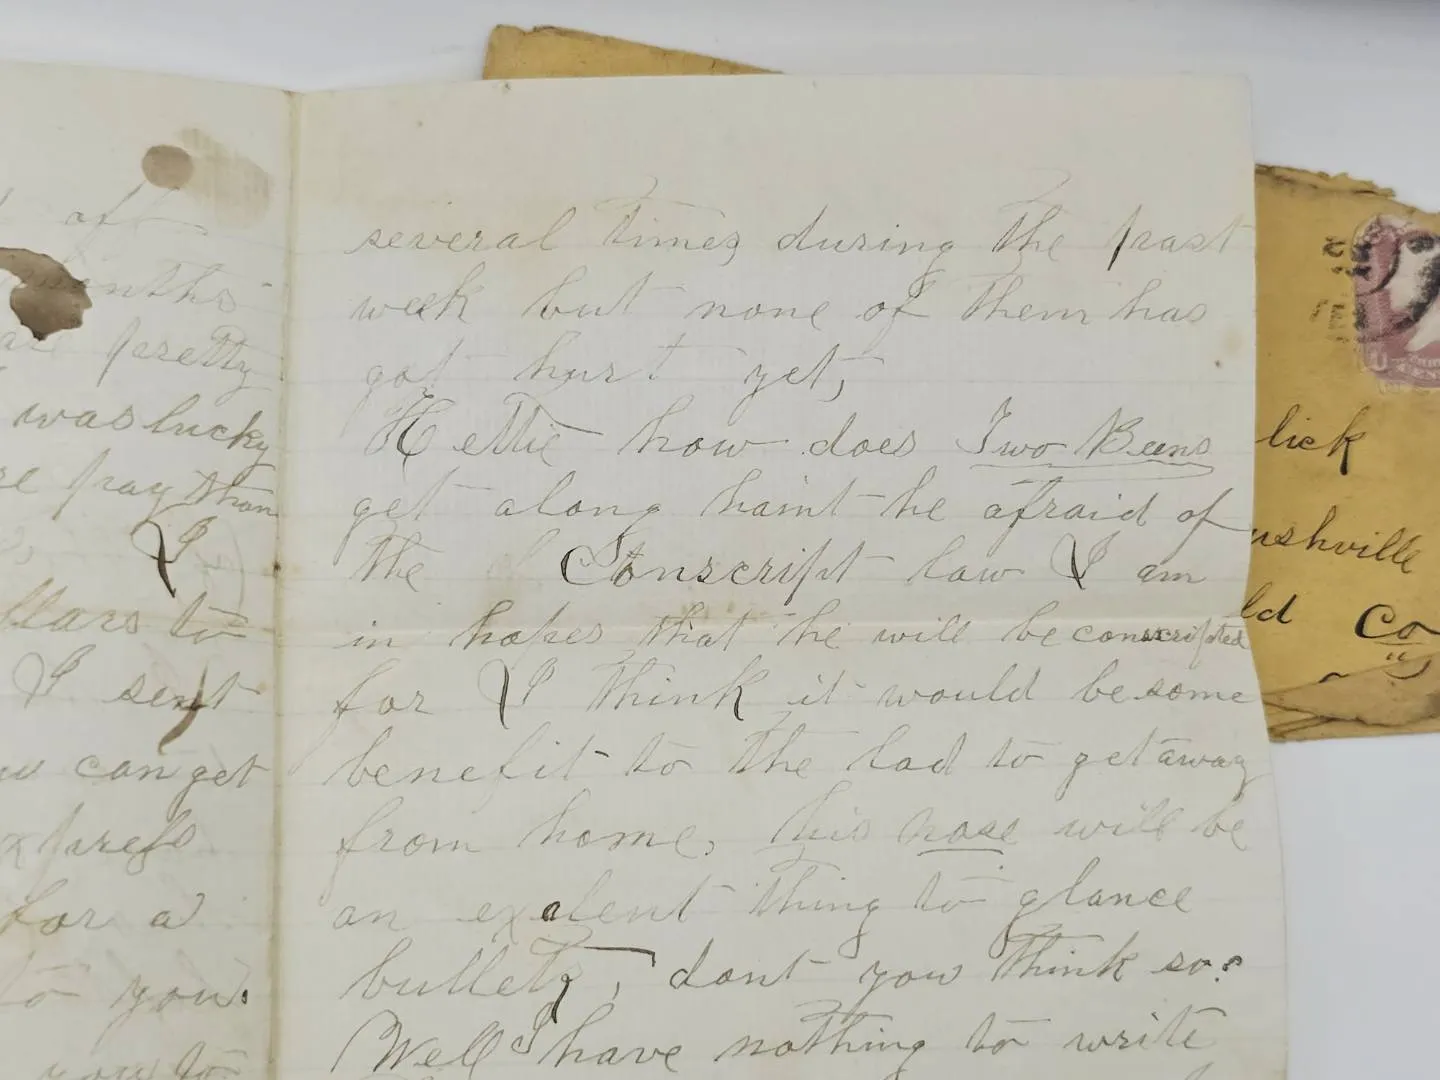 of
months
pretty
was lucky
pay than
I
to
I sent
can get
for a
to you.
you to
several times during the past
week but none of them has
got hurt yet,
Hettie how does Two Beens
get along haint he afraid of
the Conscript law I am
in hopes that he will be conscripted
for I think it would be some
benefit to the lad to get away
from home, his nose will be
an exelent thing to glance
bullets, dont you think so?
Well I have nothing to write
lick
ushville
ld Co